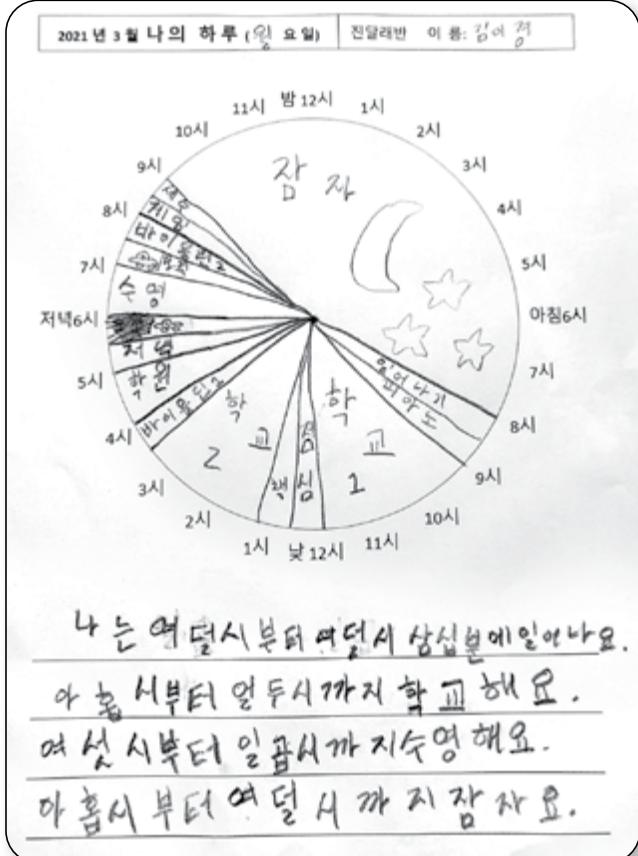 2021 년 3 월 나의 하루 (월 요일) 진달래반 이 름: 김이정
밤 12시
1시
2시
3시
4시
5시
아침6시
7시
8시
9시
10시
11시
낮 12시
1시
2시
3시
4시
5시
저녁6시
7시
8시
9시
10시
11시
잠 자
일어나기
피아노
학교 1
점심
책
학교 2
바이올린
학원
저녁
수영
바이올린2
게임
세수
나는 여덜시부터 여덜시 삼십분에일어나요.
아홉 시부터 열두시까지 학교해요.
여섯시부터 일곱시까지수영해요.
아홉시부터 여덜시까지잠자요.